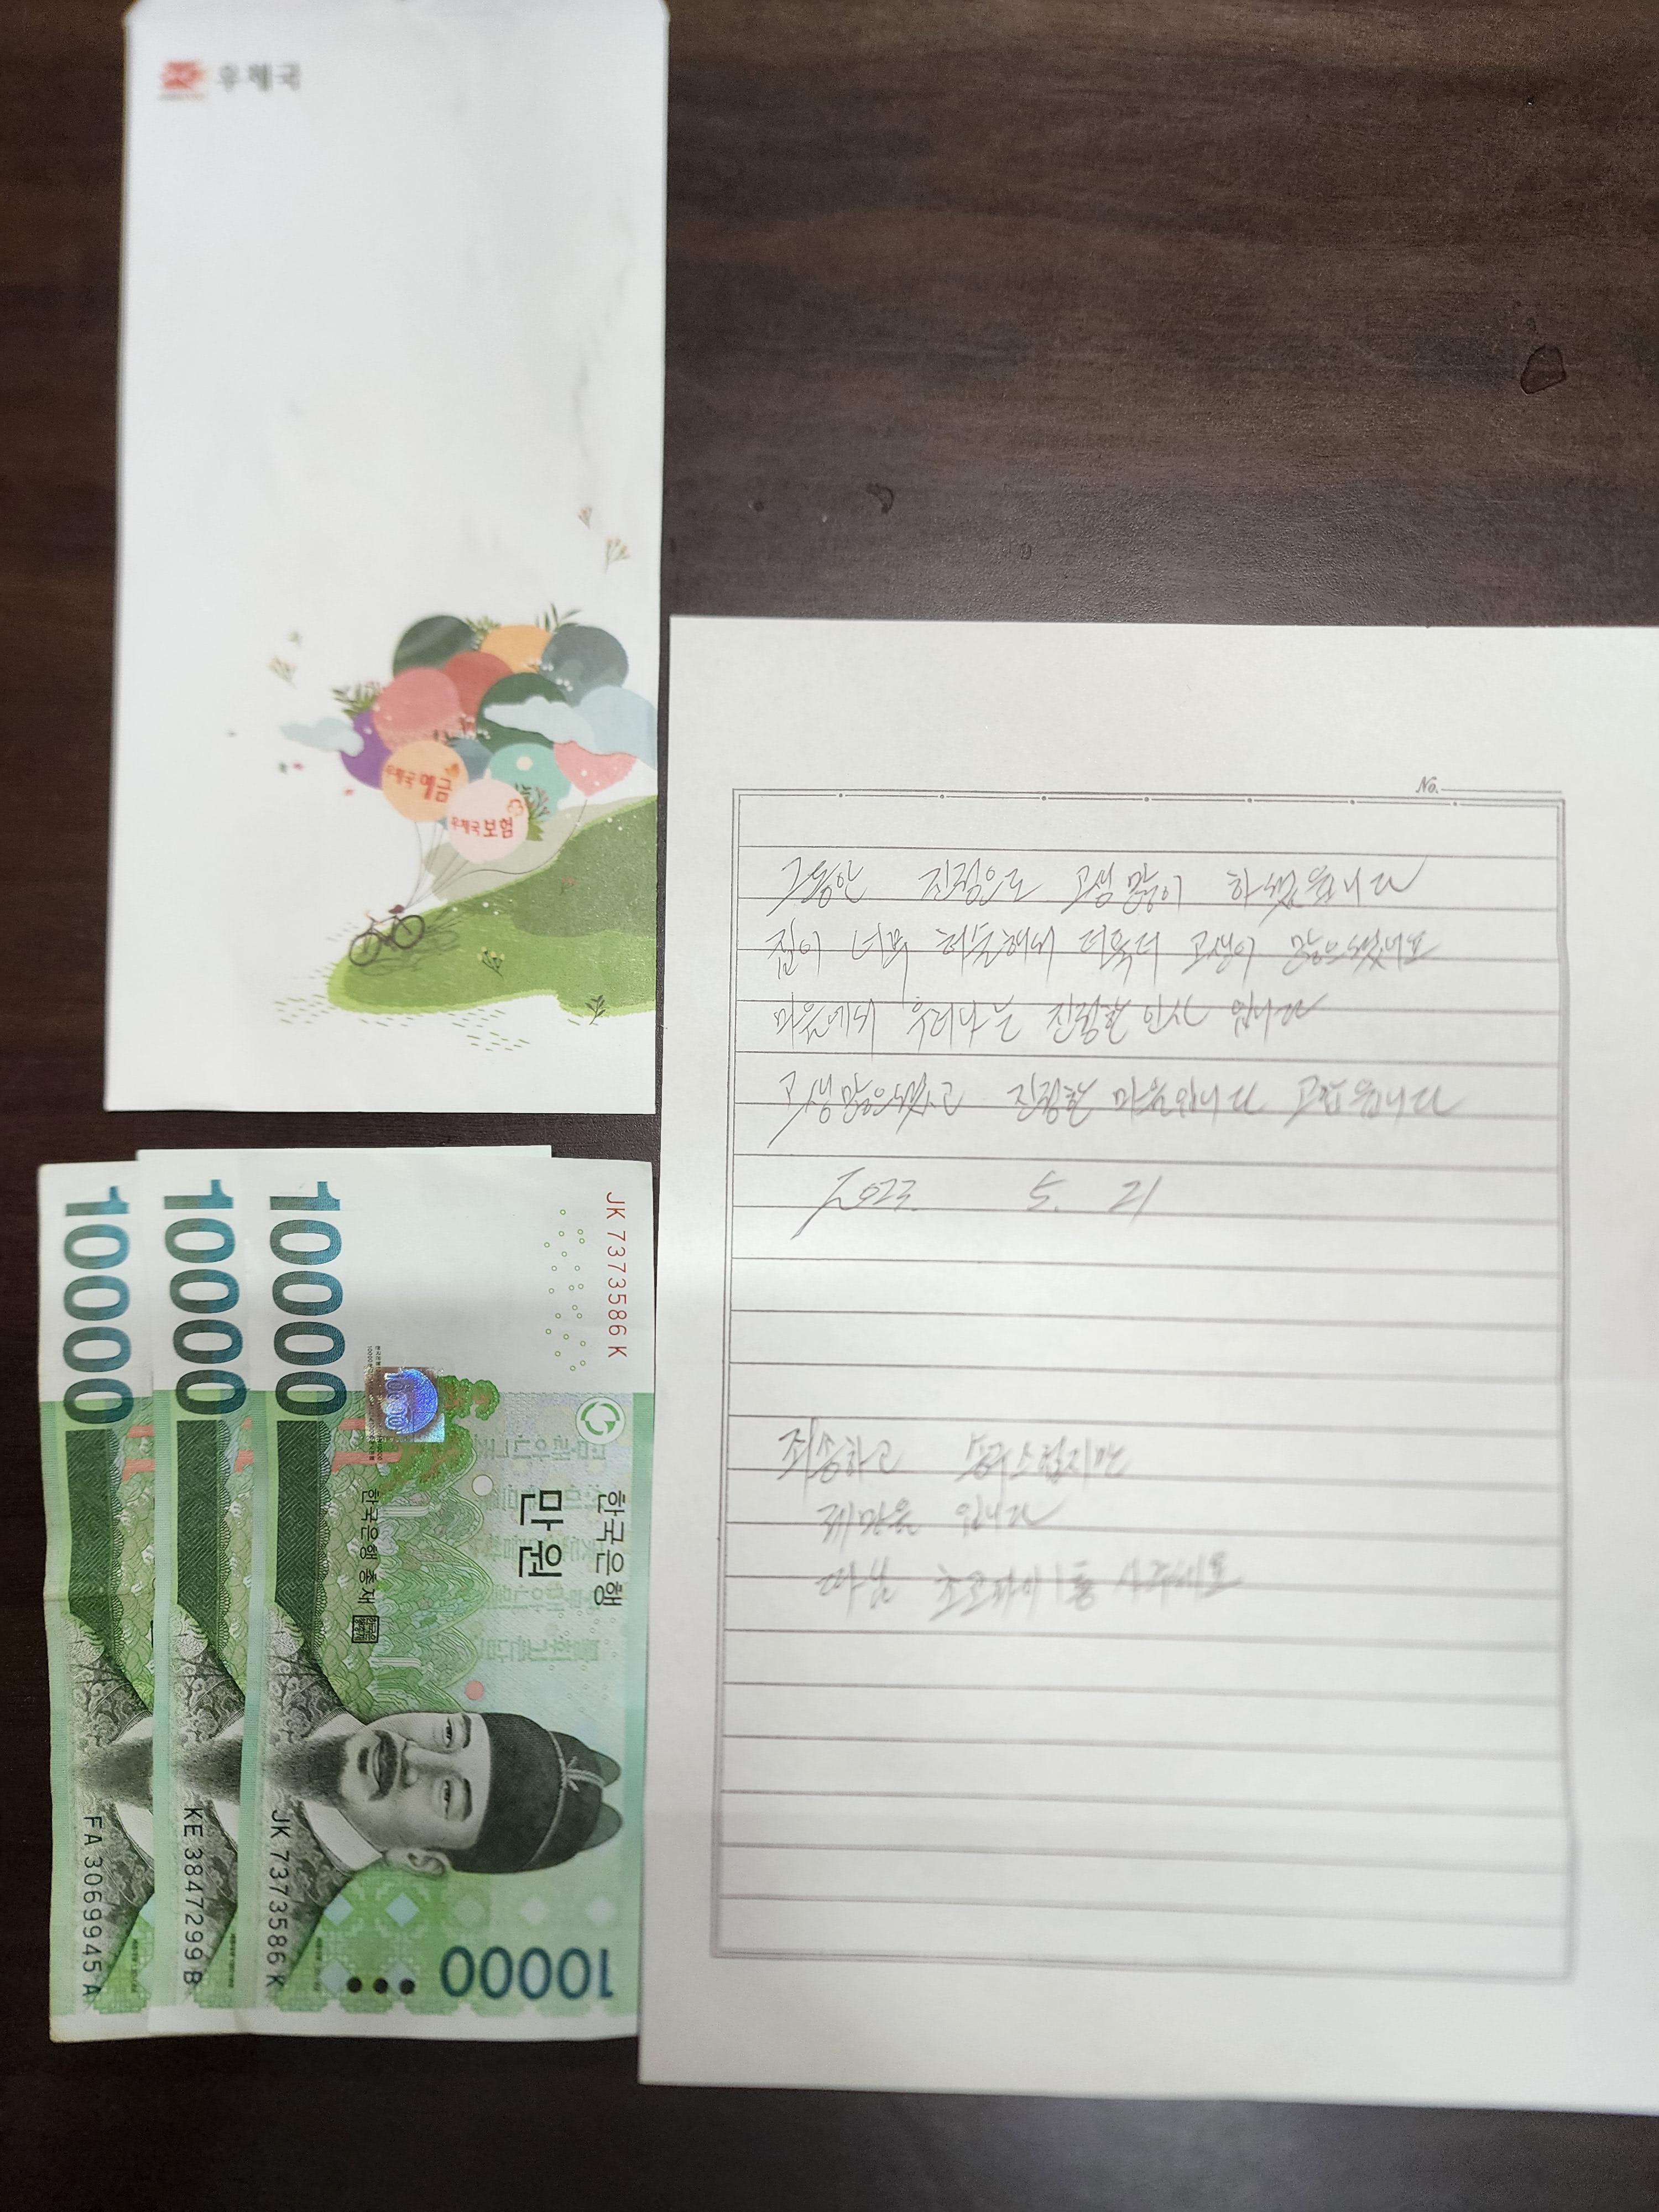 우체국
우체국 예금
우체국 보험
No.
그동안 진정으로 고생많이 하셨읍니다
집이 너무 허술해서 더욱더 고생이 많으셨네요
마음에서 우러나는 진정한 인사 입니다
고생많으셨고 진정한 마음입니다 고맙읍니다
2023. 5. 21
죄송하고 송구스럽지만
제마음 입니다
따님 초코파이 1통 사주세요
10000
10000
10000
JK 7373586 K
한국은행
만원
한국은행 총재
10000
FA 3069945 A
KE 3847299 B
JK 7373586 K